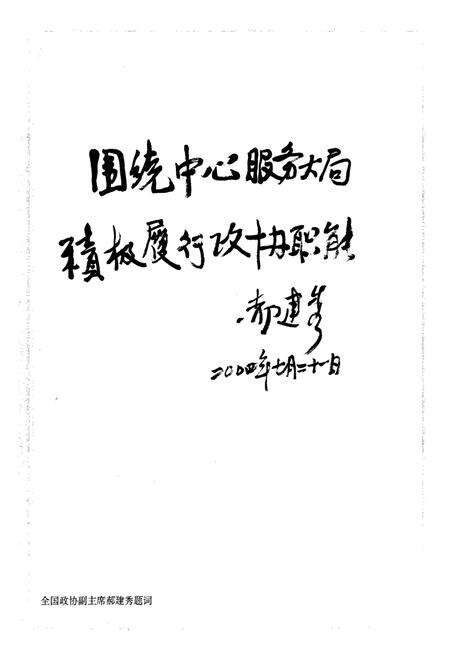 围绕中心服务大局
積极履行政协职能
郝建秀
二〇〇四年七月二十一日
全国政协副主席郝建秀题词